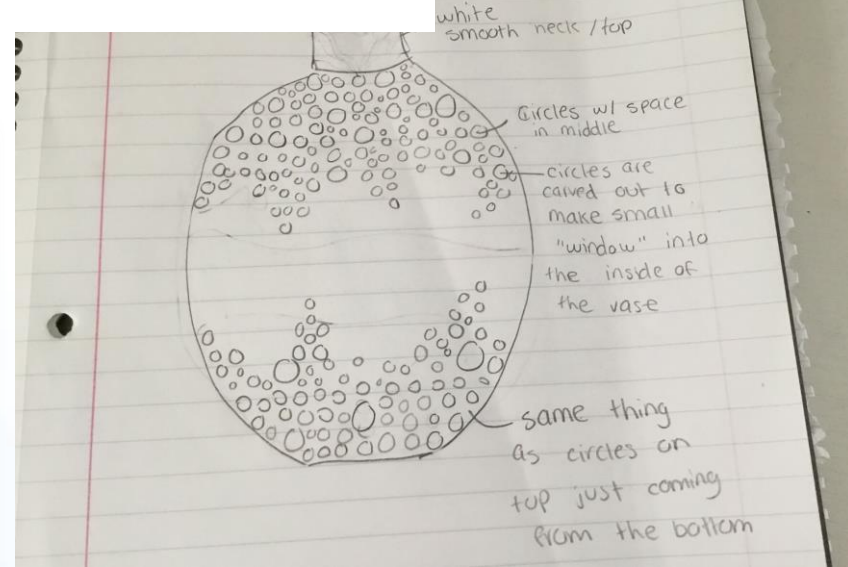 white
smooth neck / top
Circles w/ space
in middle
circles are
carved out to
make small
"window" into
the inside of
the vase
same thing
as circles on
top just coming
from the bottom